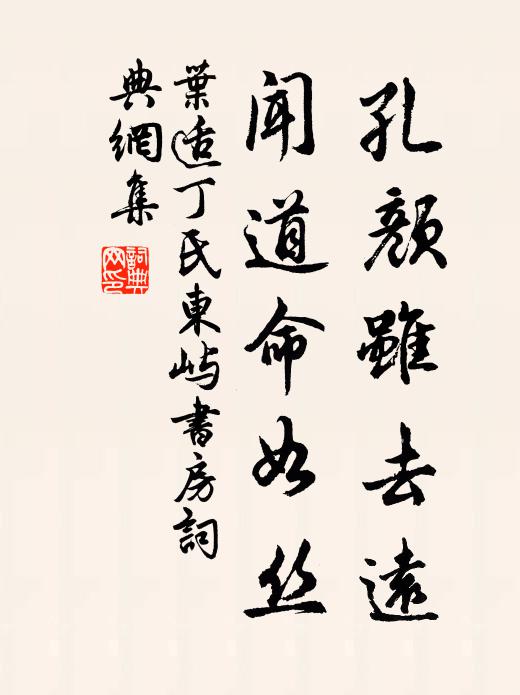 孔顏雖去遠
聞道命如丝
葉适丁氏東屿書房詞
典網集
詞典网印